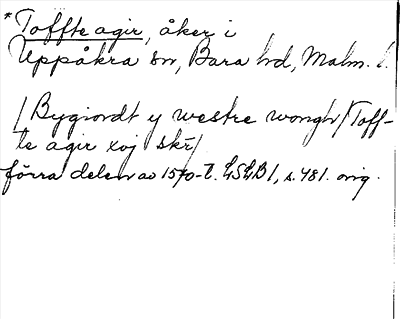 * Toffte agir, åker i
Uppåkra sn, Bara hd, Malm. l.
/Bygiordt y westre wongh/Toff-
te agir xoj skr/
förra delen av 1570-t. LSLB1, s. 481. orig.